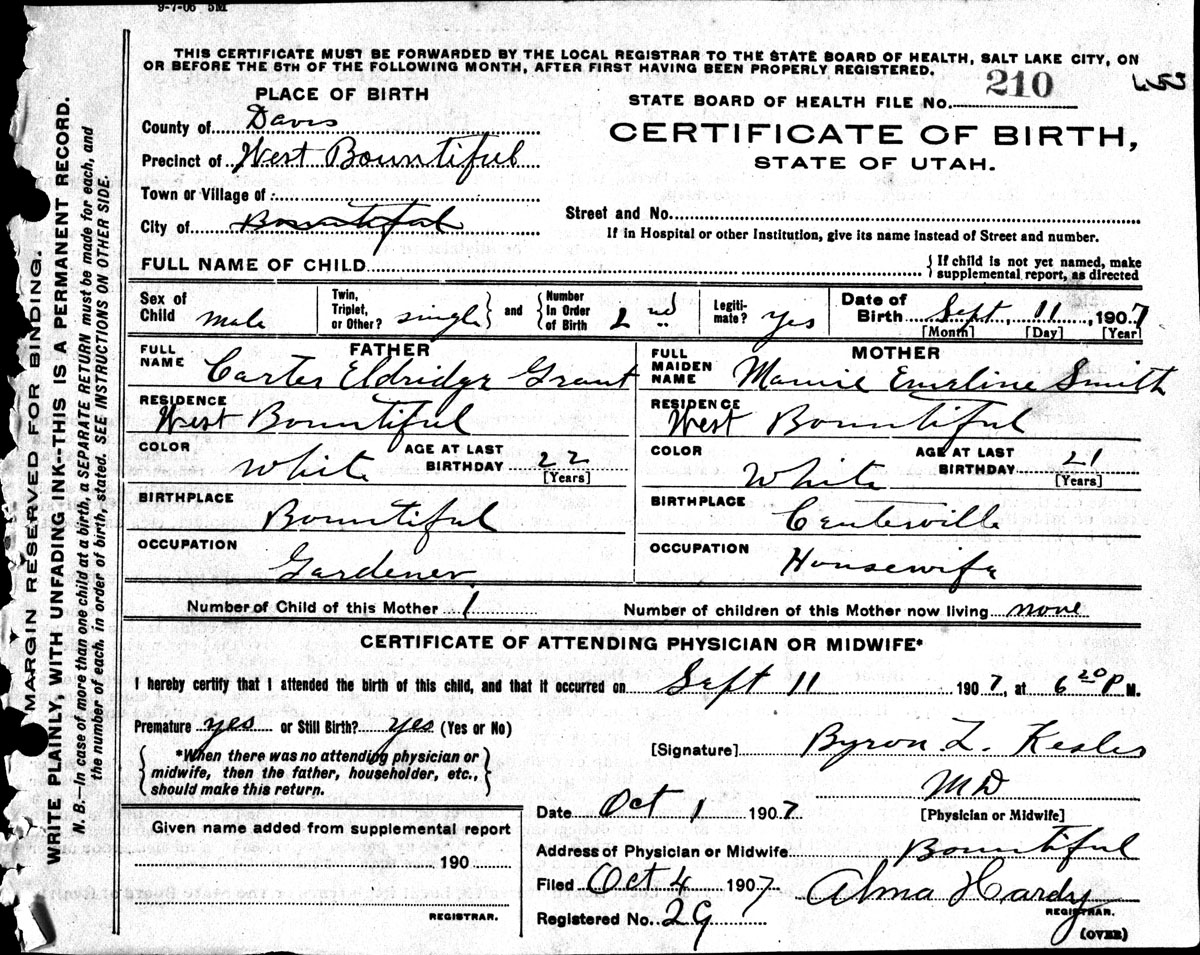 9-7-06 5M
THIS CERTIFICATE MUST BE FORWARDED BY THE LOCAL REGISTRAR TO THE STATE BOARD OF HEALTH, SALT LAKE CITY, ON
OR BEFORE THE 5TH OF THE FOLLOWING MONTH, AFTER FIRST HAVING BEEN PROPERLY REGISTERED.
453
PLACE OF BIRTH
STATE BOARD OF HEALTH FILE No. 210
County of Davis
CERTIFICATE OF BIRTH,
Precinct of West Bountiful
STATE OF UTAH.
Town or Village of
Street and No.
City of Bountiful
If in Hospital or other Institution, give its name instead of Street and number.
FULL NAME OF CHILD { If child is not yet named, make
supplemental report, as directed
Sex of Child male Twin, Triplet, or Other? single } and { Number In Order of Birth 2nd Legiti- mate? yes Date of Birth Sept, 11, 1907
[Month] [Day] [Year]
FATHER
FULL NAME Carter Eldridge Grant
RESIDENCE
West Bountiful
COLOR White AGE AT LAST BIRTHDAY 22
[Years]
BIRTHPLACE
Bountiful
OCCUPATION
Gardener
MOTHER
FULL MAIDEN NAME Mamie Emeline Smith
RESIDENCE
West Bountiful
COLOR White AGE AT LAST BIRTHDAY 21
[Years]
BIRTHPLACE
Centerville
OCCUPATION
Housewife
Number of Child of this Mother 1 Number of children of this Mother now living none
CERTIFICATE OF ATTENDING PHYSICIAN OR MIDWIFE*
I hereby certify that I attended the birth of this child, and that it occurred on Sept 11 1907, at 6 20 P M.
Premature yes or Still Birth? yes (Yes or No)
{ *When there was no attending physician or
midwife, then the father, householder, etc.,
should make this return. }
[Signature] Byron L. Kesler
MD
[Physician or Midwife]
Date Oct 1 1907
Address of Physician or Midwife Bountiful
Filed Oct 4 1907 Alma Hardy
REGISTRAR.
Registered No. 29
(OVER)
Given name added from supplemental report
190
REGISTRAR.
MARGIN RESERVED FOR BINDING.
WRITE PLAINLY, WITH UNFADING INK--THIS IS A PERMANENT RECORD.
N. B.—In case of more than one child at a birth, a SEPARATE RETURN must be made for each, and
the number of each, in order of birth, stated. SEE INSTRUCTIONS ON OTHER SIDE.